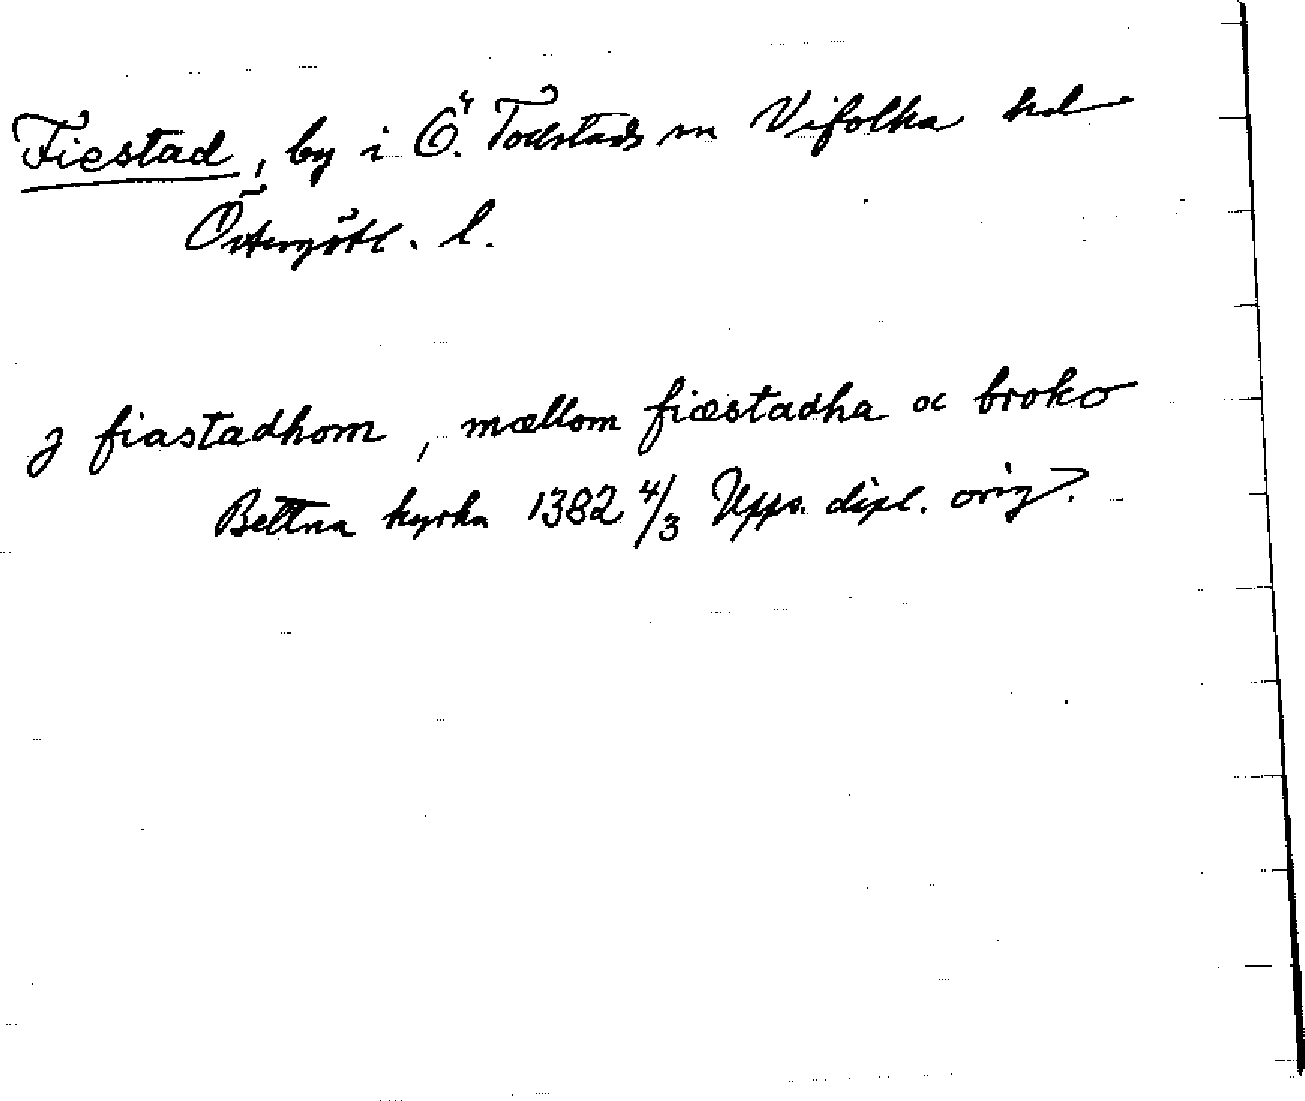 Fiestad, by i Ö. Tollstads sn Vifolka hd
Östergötl. l.
J fiastadhom, mællom fiæstadha oc broko
Bettna kyrka 1382 4/3 Upps. dipl. orig.